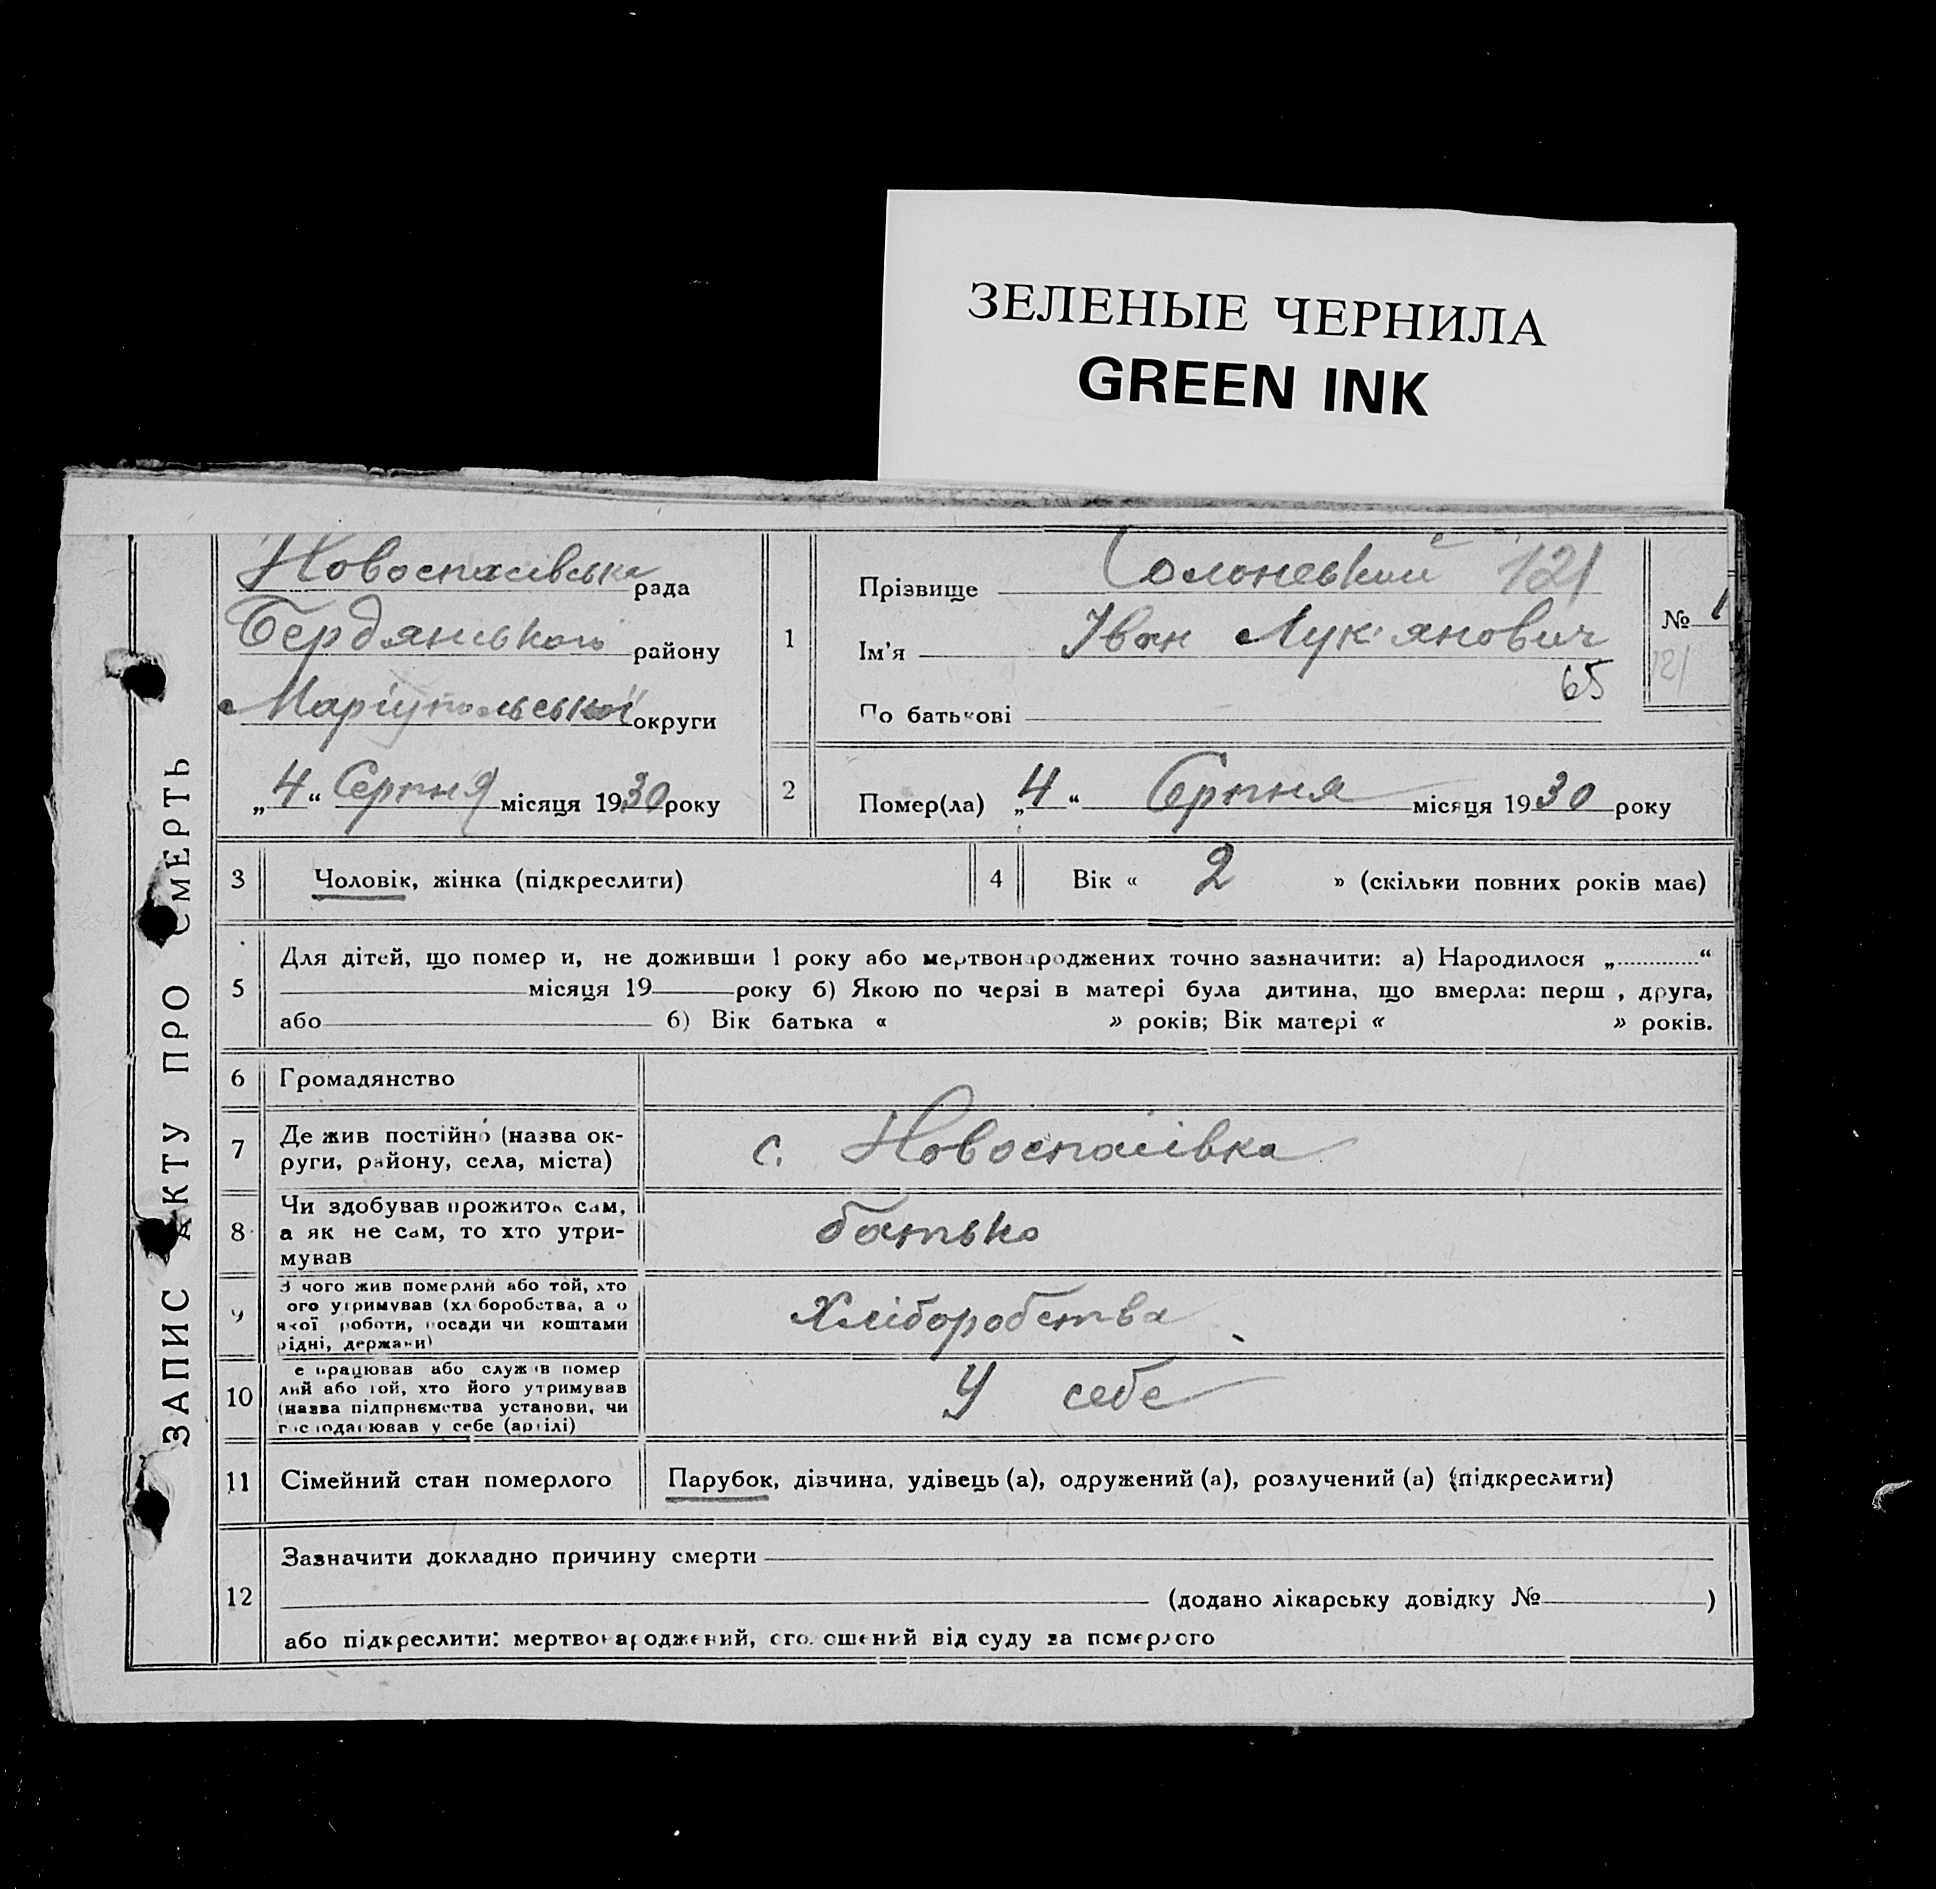 ЗЕЛЕНЫЕ ЧЕРНИЛА
GREEN INK
ЗАПИС АКТУ ПРО СМЕРТЬ
Новоспасівська рада
Бердянського району
Маріупольської округи
„4“ Серпня місяця 1930 року
1 Прізвище Солоневький 121
Ім'я Іван Лук'янович
65
По батькові
№ 1
121
2 Помер(ла) „4“ Серпня місяця 1930 року
3 Чоловік, жінка (підкреслити)
4 Вік « 2 » (скільки повних років має)
5 Для дітей, що помер и, не доживши 1 року або мертвонароджених точно зазначити: а) Народилося „............“
місяця 19 року б) Якою по черзі в матері була дитина, що вмерла: перш , друга,
або б) Вік батька « » років; Вік матері « » років.
6 Громадянство
7 Де жив постійно (назва ок-
руги, району, села, міста)
с. Новоспасівка
8 Чи здобував прожиток сам,
а як не сам, то хто утри-
мував
батько
9 З чого жив померлий або той, хто
ого утримував (хліборобства, а о
якої роботи, посади чи коштами
рідні, держави)
Хліборобства
10 е працював або служив помер
лий або той, хто його утримував
(назва підприємства установи, чи
господарював у себе (артілі)
У себе
11 Сімейний стан померлого
Парубок, дівчина, удівець (а), одружений (а), розлучений (а) (підкреслити)
12 Зазначити докладно причину смерти
(додано лікарську довідку № )
або підкреслити: мертвонароджений, оголошений від суду за померлого